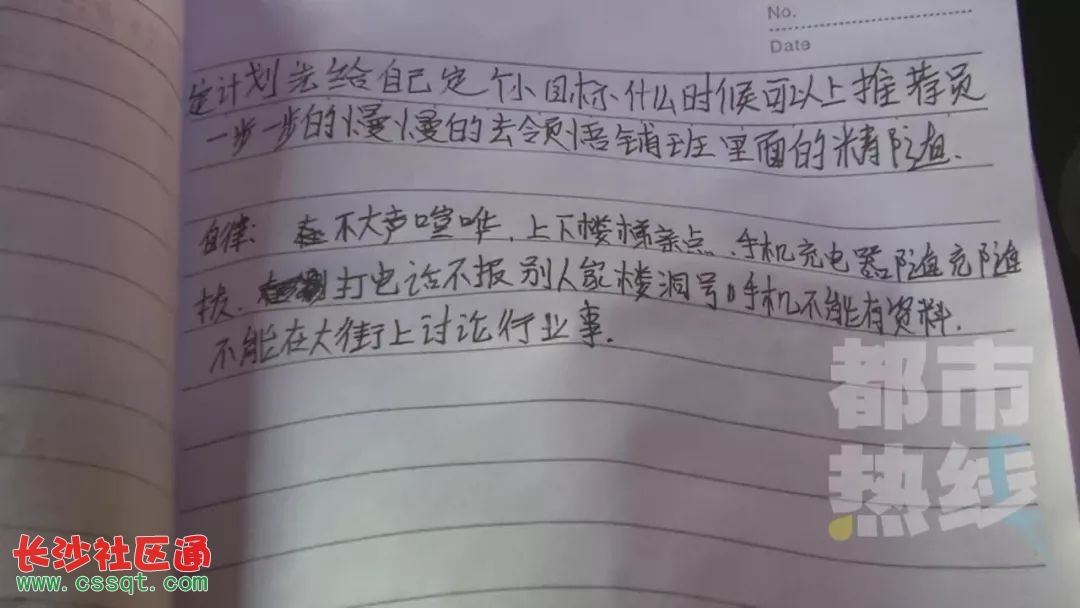 No.
Date
定计划先给自己定个小目标什么时候可以上推荐员
一步一步的慢慢的去领悟铺班里面的精随
自律: 不大声喧哗、上下楼梯亲点、手机充电器随充随
拔、打电话不报别人家楼洞号、手机不能有资料.
不能在大街上讨论行业事.
都市
热线
长沙社区通
www.cssqt.com